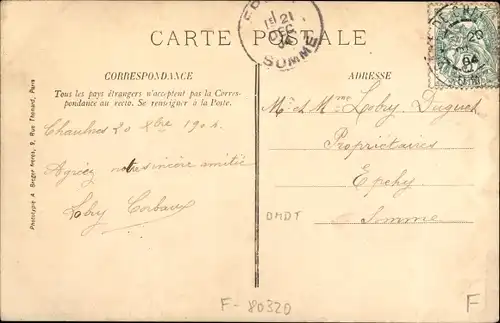 CARTE POSTALE
21
DEC
04
SOMME
20
04
CORRESPONDANCE
Tous les pays étrangers n'acceptent pas la Corres-
pondance au recto. Se renseigner à la Poste.
Chaulnes 20 Xbre 1904.
Agréez notre sincère amitié
Lobry Corbaux
ADRESSE
Mr et Mme Lobry Duquet
Propriétaires
Epehy
Somme
DMDT
Phototypie A. Berger frères, 9, Rue Thénard, Paris
F-80320
F